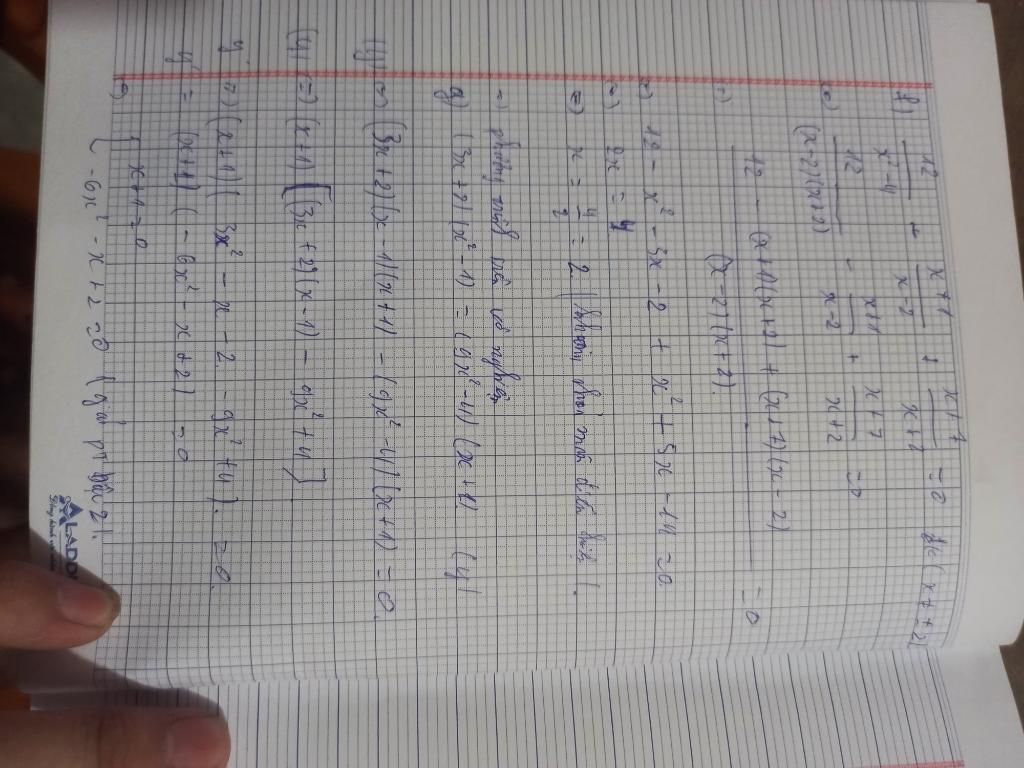 f) 12/(x²-4) + (x+1)/(x-2) + (x+7)/(x+2) = 0 đk (x ≠ ±2)
12/((x-2)(x+2)) - (x+1)/(x-2) + (x+7)/(x+2) = 0
(12 - (x+1)(x+2) + (x+7)(x-2))/((x-2)(x+2)) = 0
12 - x² - 3x - 2 + x² + 5x - 14 = 0
2x = 4
x = 4/2 = 2 (không thỏa mãn điều kiện).
=) phương trình vô nghiệm
g) (3x+2)(x²-1) = (9x²-4)(x+1) (y)
(y) (3x+2)(x-1)(x+1) - (9x²-4)(x+1) = 0.
(y) (=) (x+1)[(3x+2)(x-1) - 9x²+4]
y (x+1)(3x² - x - 2 - 9x² + 4) = 0.
y = (x+1)(-6x² - x + 2) = 0
x+1 = 0
-6x² - x + 2 = 0 (giải pt bậc 2).
ALADD